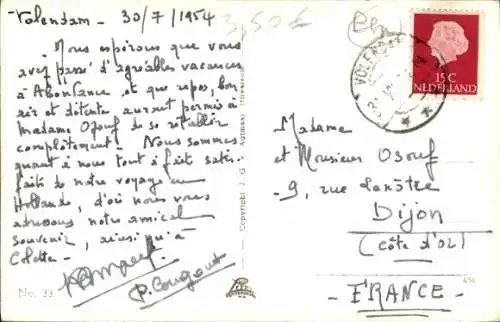 Volendam - 30/7/1954
Nous espérons que vous
avez passé d'agréables vacances
à Abondance et que repos, bon
air et détente auront permis à
Madame Osouf de se rétablir
complètement - Nous sommes
quant à nous tout à fait satis-
faits de notre voyage en
Hollande, d'où nous vous
adressons notre amical
souvenir, ainsi qu'à
Colette -
P. Cougout
No. 33
Copyright J. G.
3,50 €
VOLENDAM
15 C
NEDERLAND
Madame
et Monsieur Osouf
- 9, rue Lenôtre
Dijon
(Côte d'Or)
- FRANCE -